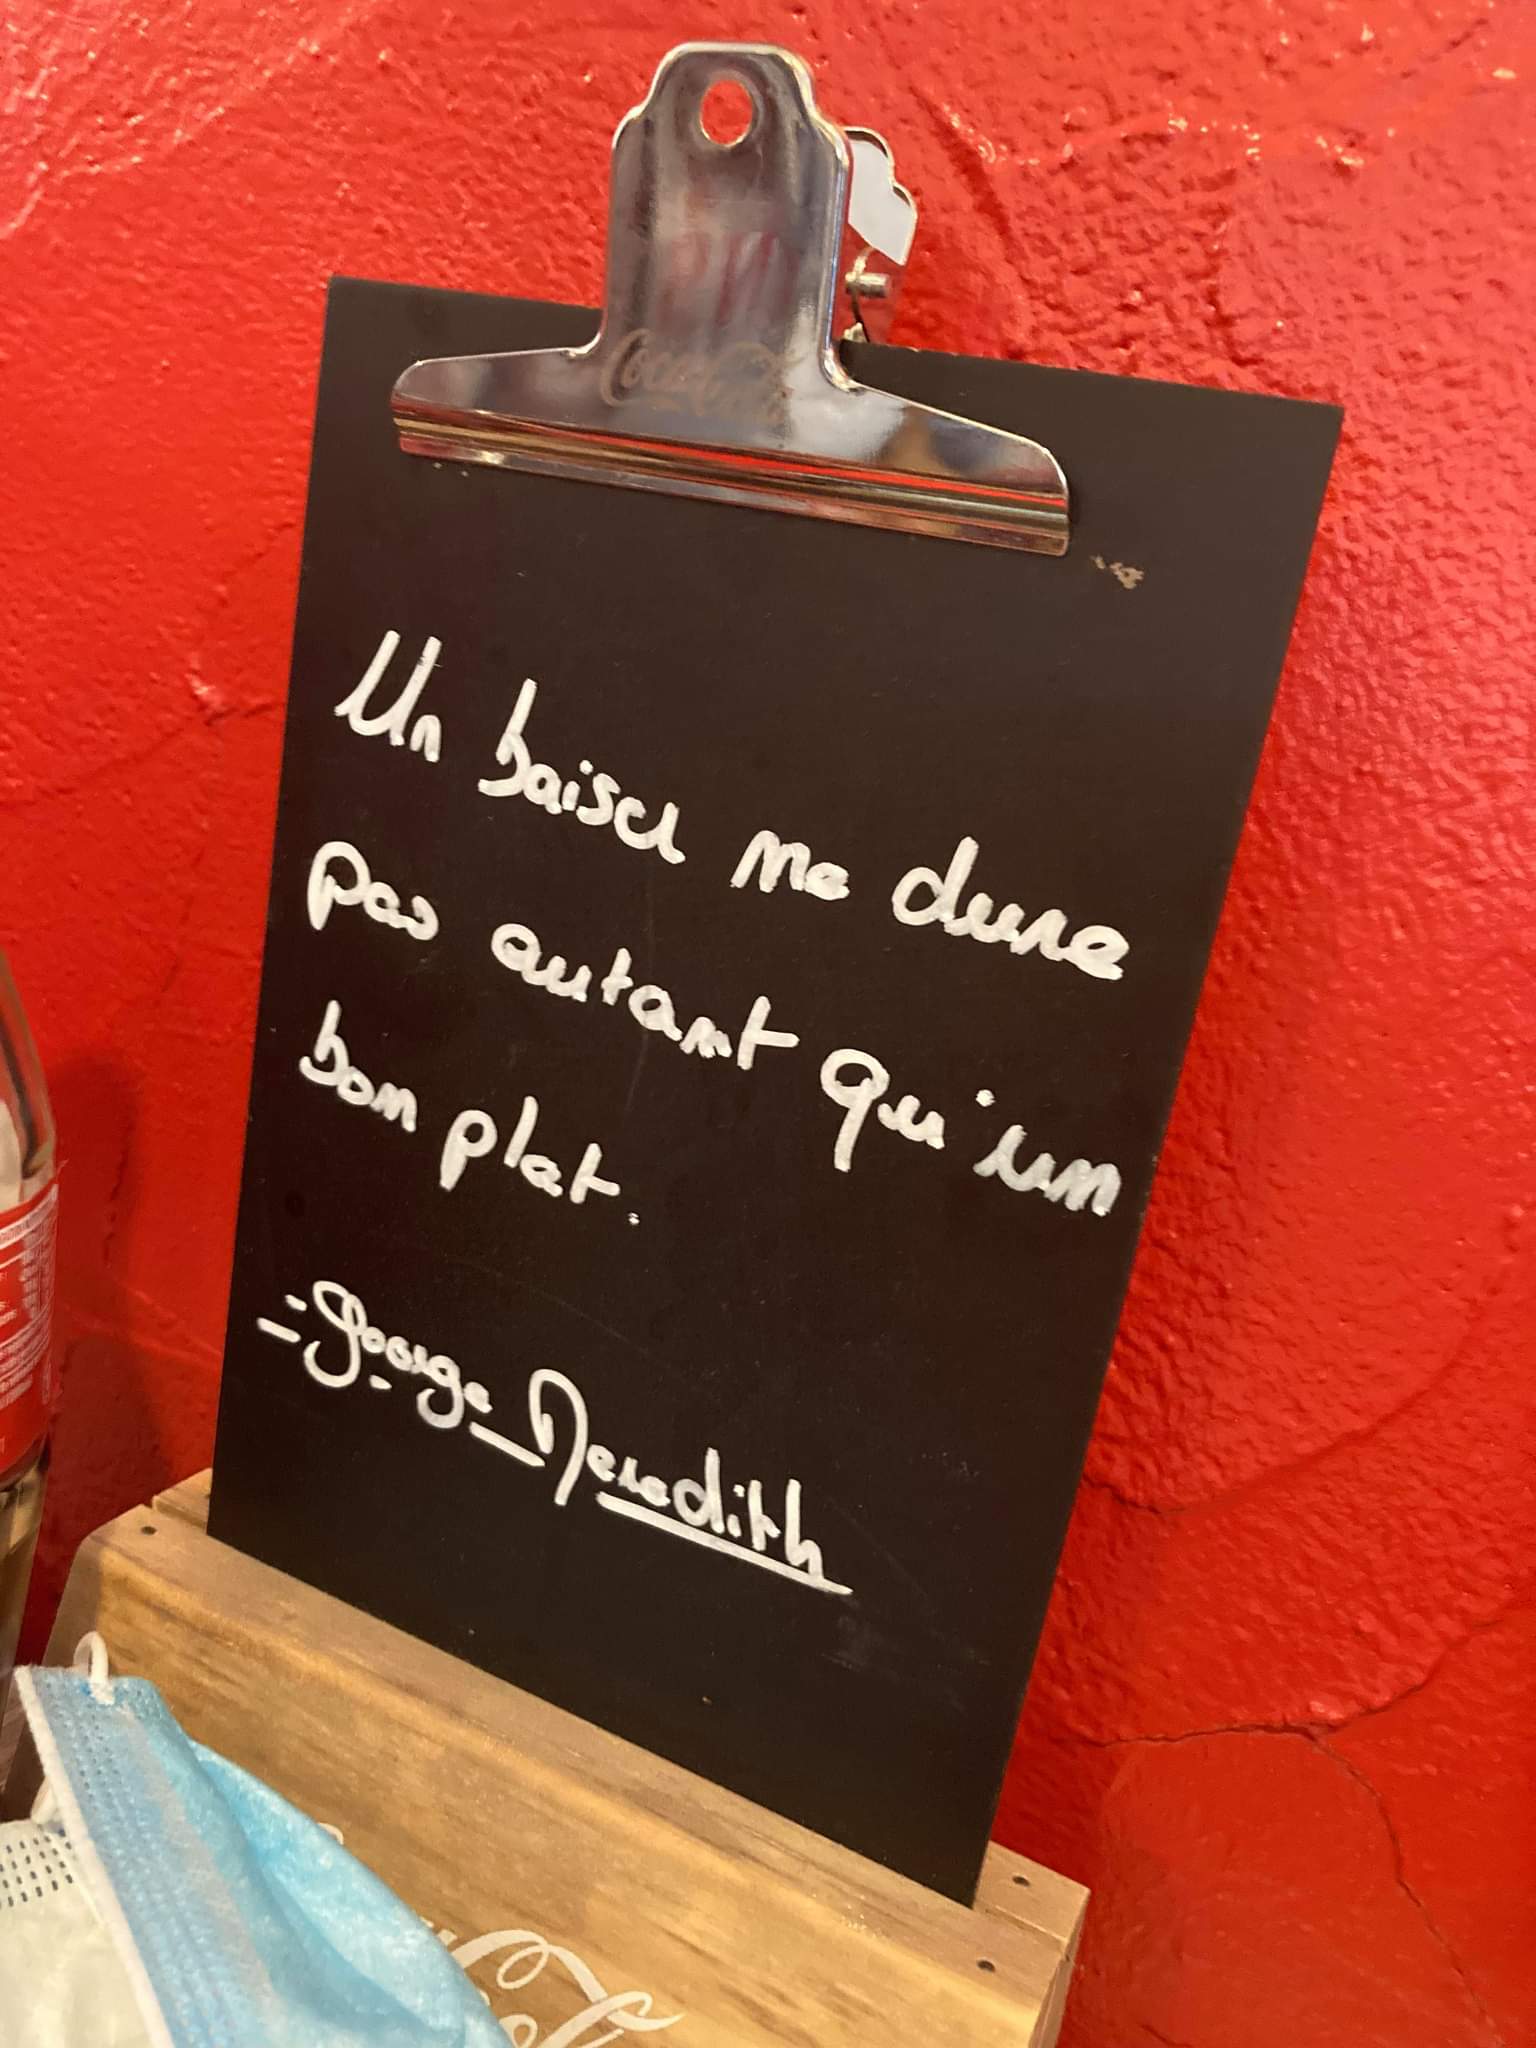 Coca-Cola
Un baiser ne dure
pas autant qu'un
bon plat.
- George Meredith